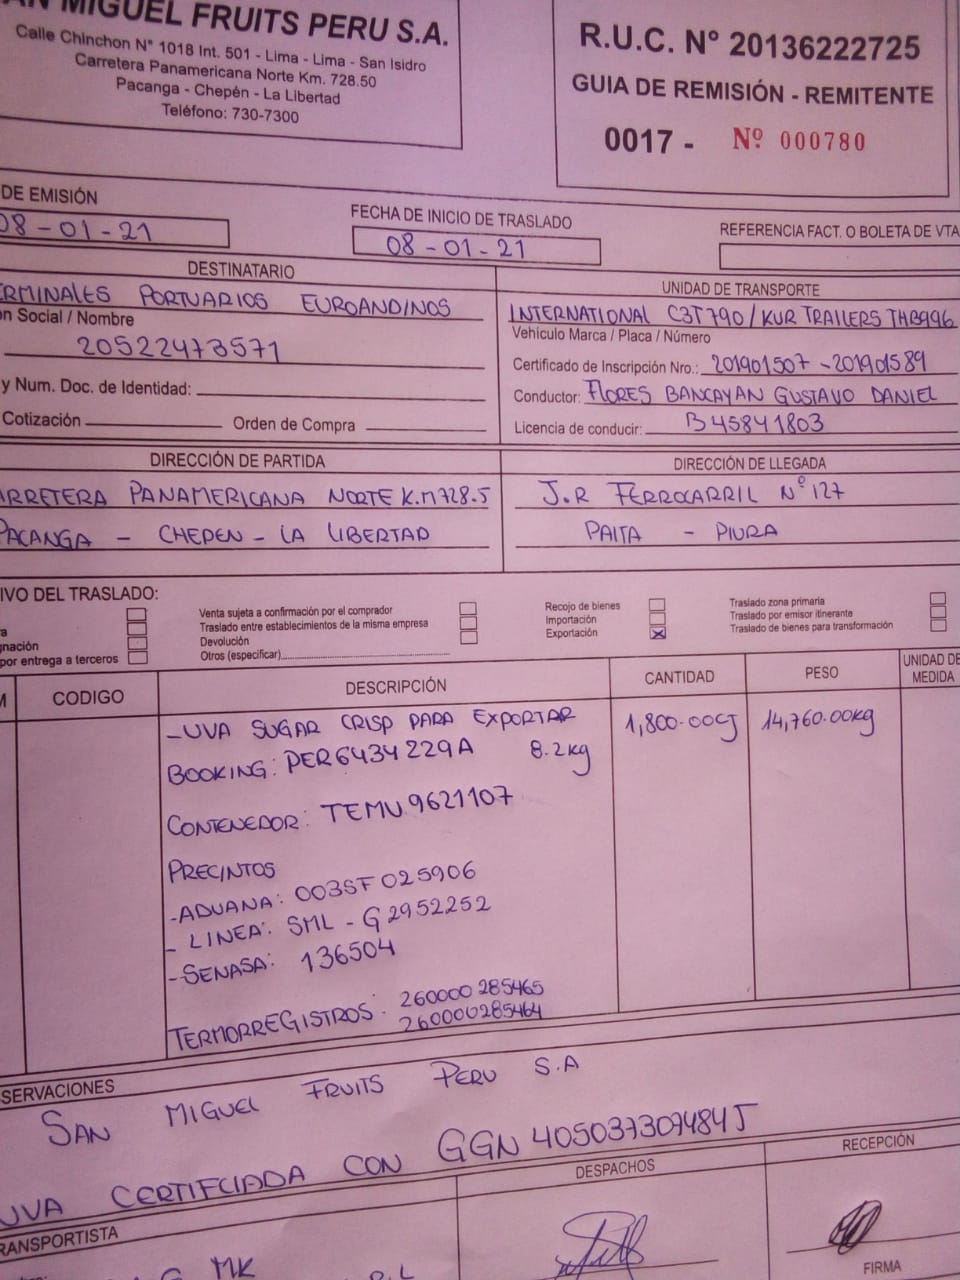 MIGUEL FRUITS PERU S.A.
Calle Chinchon N° 1018 Int. 501 - Lima - Lima - San Isidro
Carretera Panamericana Norte Km. 728.50
Pacanga - Chepén - La Libertad
Teléfono: 730-7300
R.U.C. N° 20136222725
GUIA DE REMISIÓN - REMITENTE
0017 - Nº 000780
DE EMISIÓN
08-01-21
FECHA DE INICIO DE TRASLADO
08-01-21
REFERENCIA FACT. O BOLETA DE VTA
DESTINATARIO
ERMINALES PORTUARIOS EUROANDINOS
n Social / Nombre
20522473571
y Num. Doc. de Identidad:
Cotización Orden de Compra
UNIDAD DE TRANSPORTE
INTERNATIONAL C3T790/KUR TRAILERS THB996
Vehículo Marca / Placa / Número
Certificado de Inscripción Nro.: 201901507 - 201901589
Conductor: FLORES BANCAYAN GUSTAVO DANIEL
Licencia de conducir: B45841803
DIRECCIÓN DE PARTIDA
ARRETERA PANAMERICANA NORTE K.M 728.5
PACANGA - CHEPEN - LA LIBERTAD
DIRECCIÓN DE LLEGADA
J.R FERROCARRIL N° 127
PAITA - PIURA
IVO DEL TRASLADO:
a
gnación
por entrega a terceros
Venta sujeta a confirmación por el comprador
Traslado entre establecimientos de la misma empresa
Devolución
Otros (especificar)
Recojo de bienes
Importación
Exportación X
Traslado zona primaria
Traslado por emisor itinerante
Traslado de bienes para transformación
M CODIGO DESCRIPCIÓN CANTIDAD PESO UNIDAD DE MEDIDA
-UVA SUGAR CRISP PARA EXPORTAR 1,800.00CJ 14,760.00kg
BOOKING: PER6434229A 8.2kg
CONTENEDOR: TEMU9621107
PRECINTOS
-ADUANA: 003SF025906
- LINEA: SML - G2952252
-SENASA: 136504
TERMORREGISTROS: 260000285465
260000285464
SERVACIONES
SAN MIGUEL FRUITS PERU S.A
UVA CERTIFCIADA CON GGN 4050373074845
RANSPORTISTA
MK
DESPACHOS
RECEPCIÓN
FIRMA